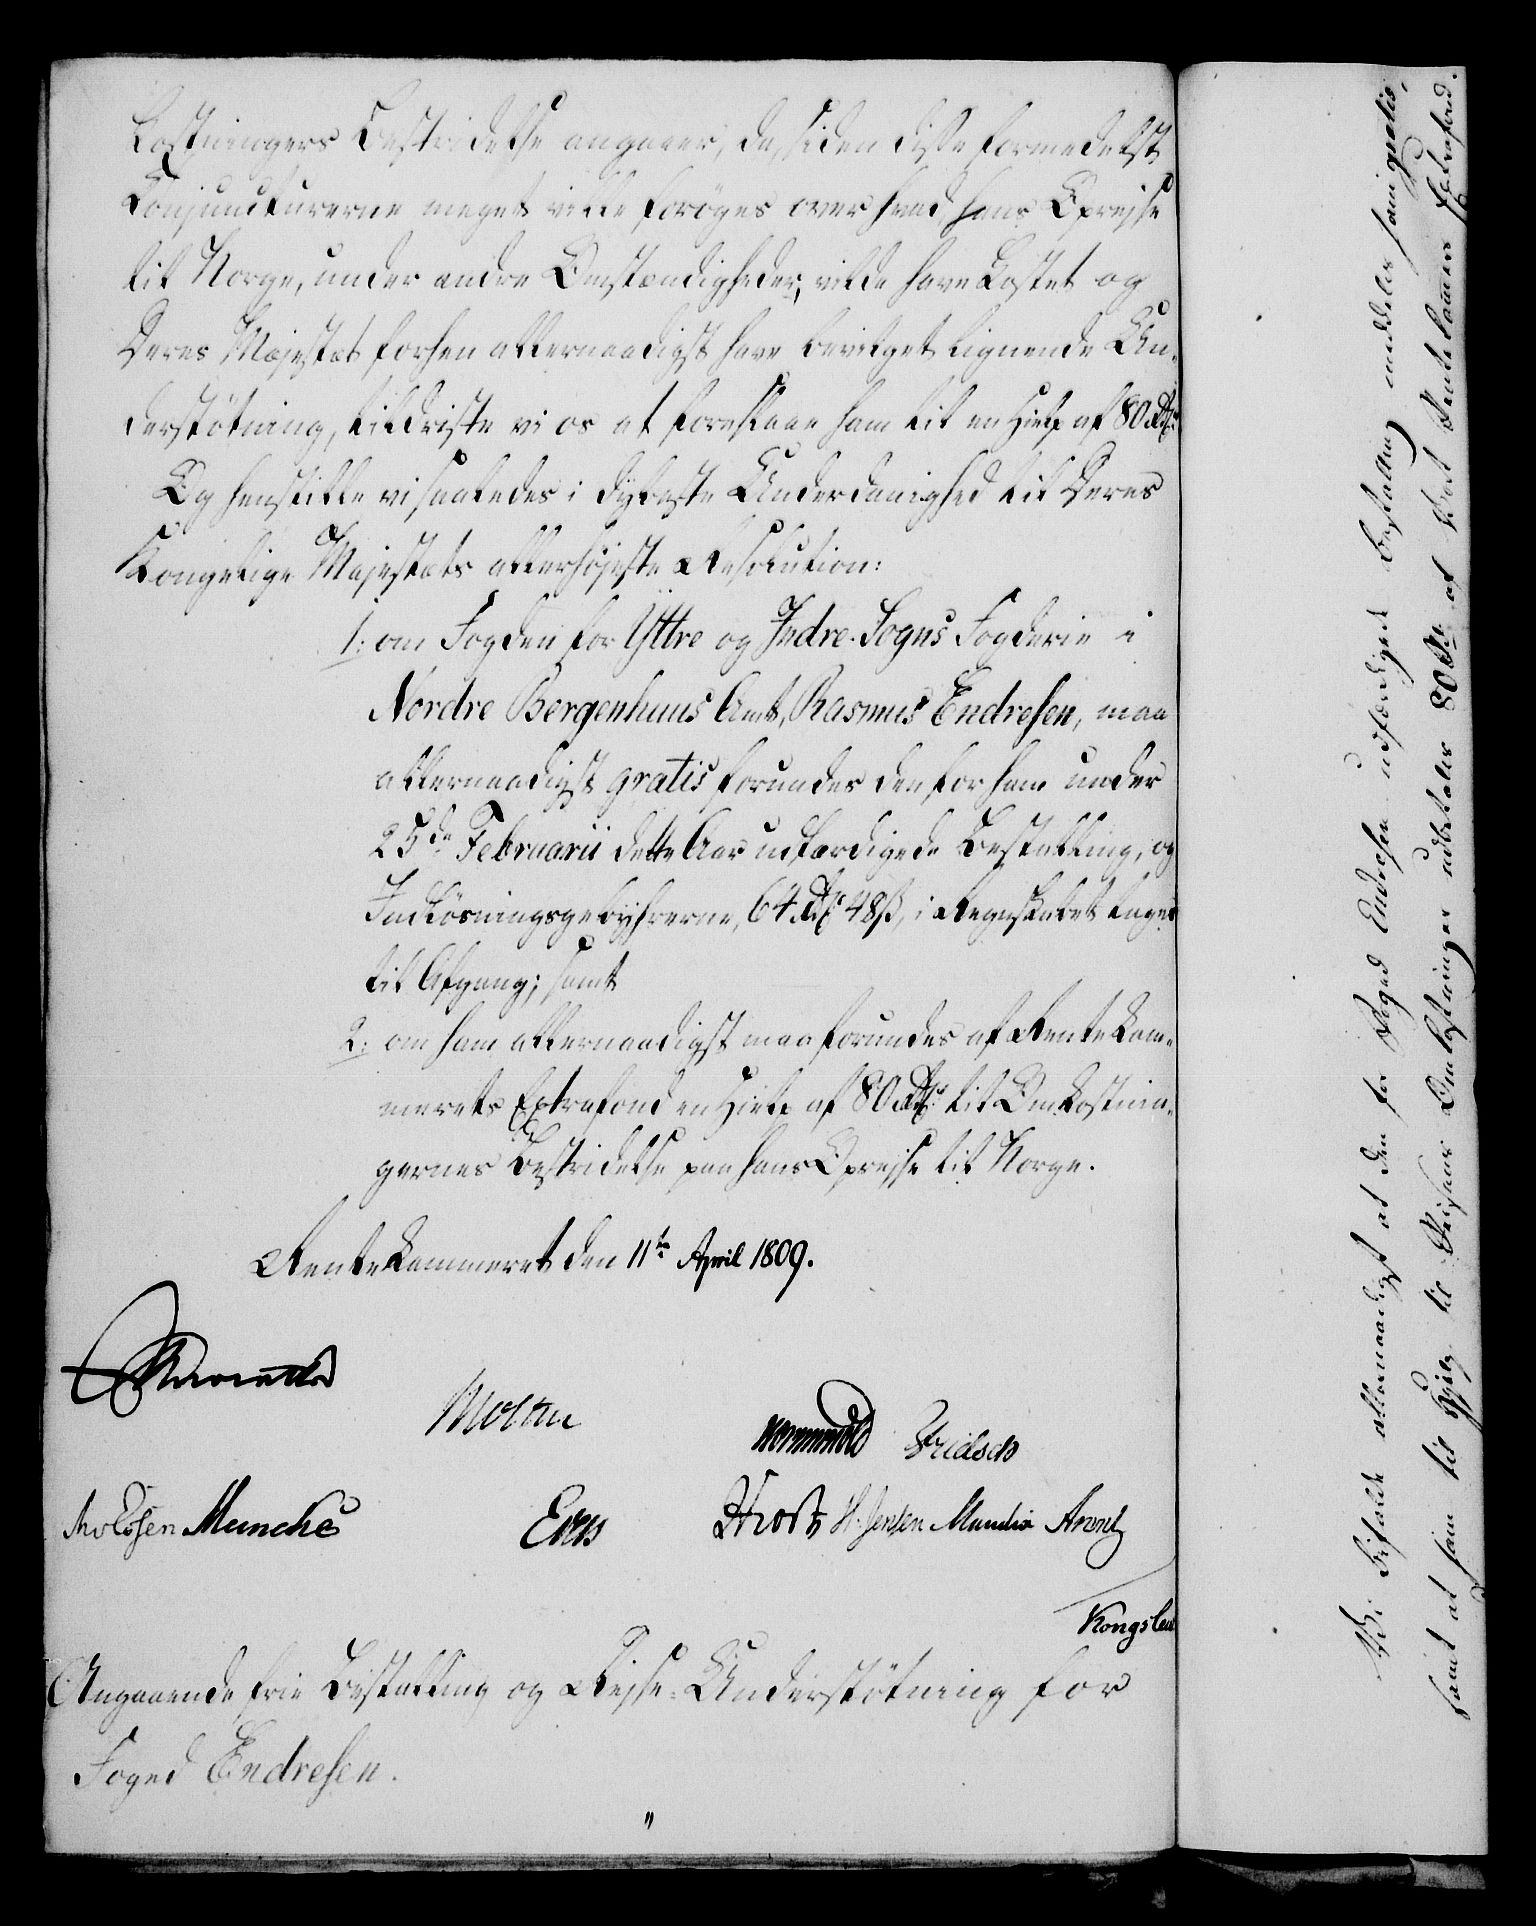 kostningers Bestridelse angaaer, da, siden disse formedelst
Conjuncturerne meget ville forøges over hvad hans Oprejse
til Norge, under andre Omstændigheder, vilde have kostet og
Deres Majestæt forhen allernaadigst have bevilget lignende Un-
derstøtning, tildriste vi os at foreslaae ham til en Hielp af 80 Rdlr.
Og henstille vi saaledes i dybeste Underdanighed til Deres
Kongelige Majestæts allerhøjeste Resolution:
1: om Fogden for Yttre og Indre-Sogns Fogderie i
Nordre Bergenhuus Amt, Rasmus Endresen, maa
allernaadigst gratis forundes den for ham under
25de Februarii dette Aar udfærdigede Bestalling, og
Indløsningsgebyhrerne, 64 Rdlr 48 ß, i Regnskabet tages
til Afgang; samt
2: om ham allernaadigst maa forundes af Rentekam-
merets Extrafond en Hielp af 80 Rdlr. til Omkostnin-
gernes Bestridelse paa hans Oprejse til Norge.
Rentekammeret den 11te April 1809.
Moltke
Wormskiold Fridsch
Munthe
Evers
H. Jensen Mandix Arentz
Kongslew
Angaaende frie Bestalling og Rejse-Understøtning for
Foged Endresen.
Vi bifalde allernaadigst at den for Foged Endresen udfærdigede Bestalling meddeles ham gratis,
samt at ham til Hjelp til Reisens Omkostninger udbetales 80 Rdlr af Vort Rentekammers Extrafond.